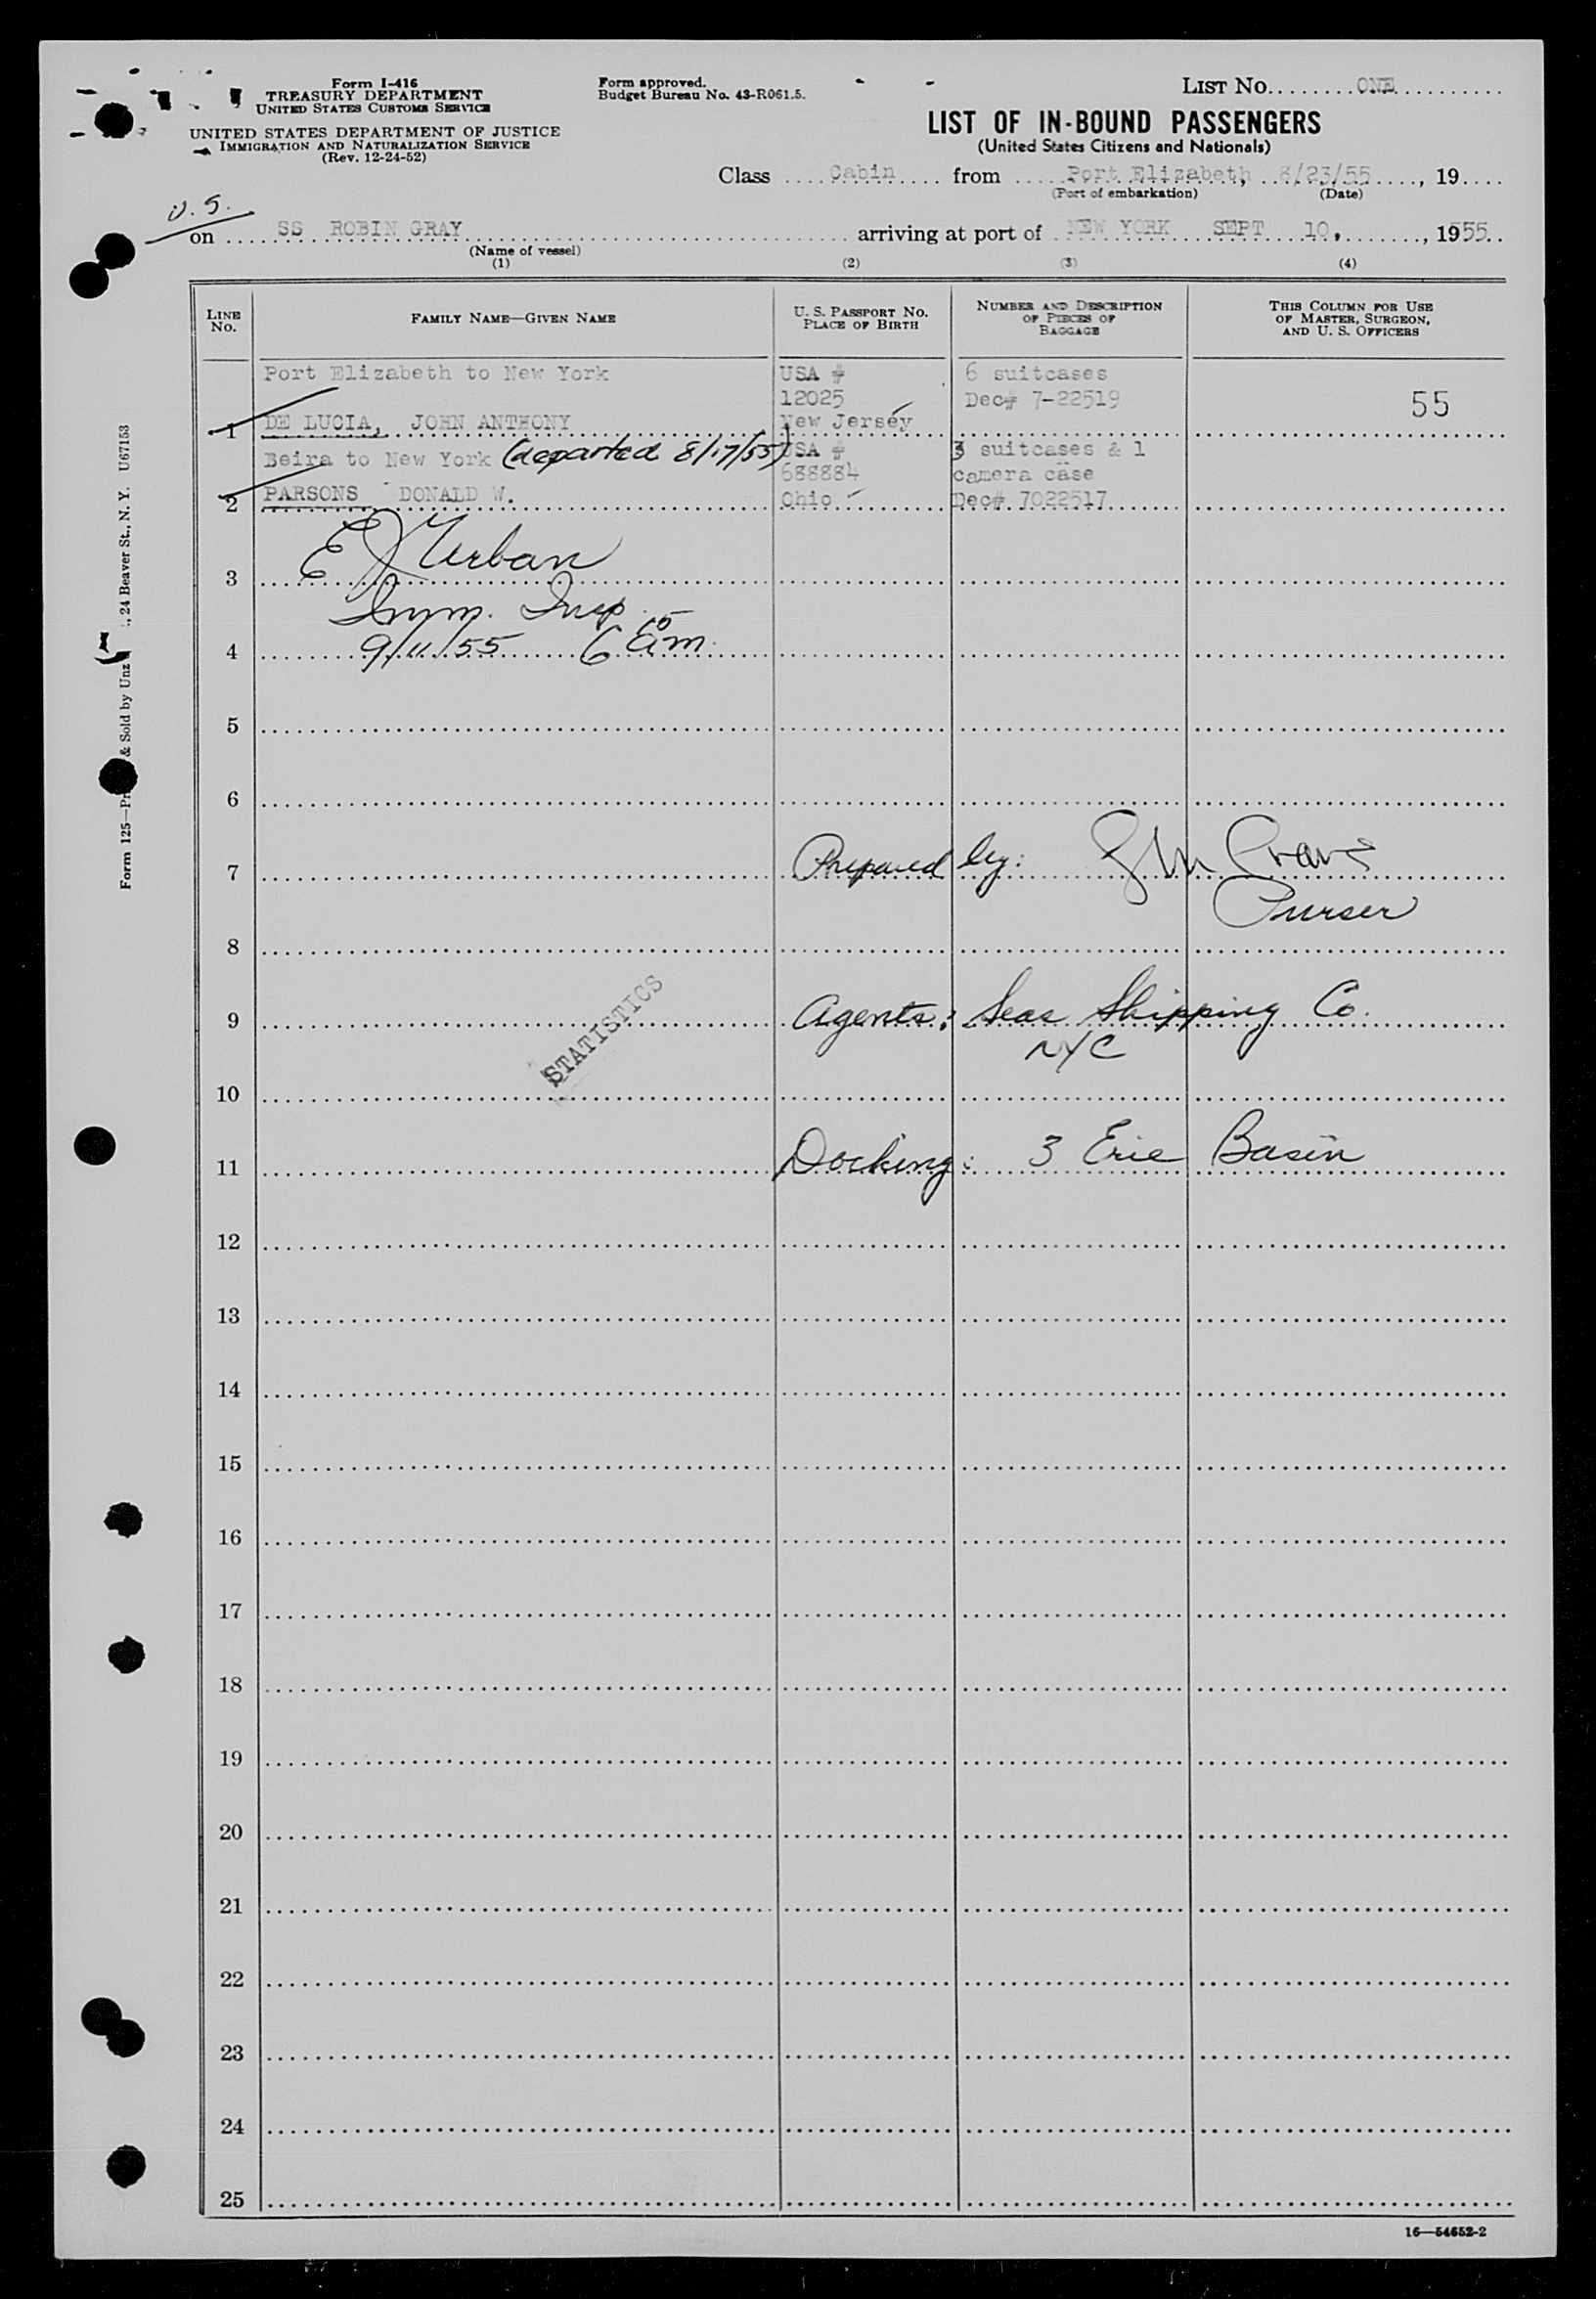 Form I-416
TREASURY DEPARTMENT
UNITED STATES CUSTOMS SERVICE
UNITED STATES DEPARTMENT OF JUSTICE
IMMIGRATION AND NATURALIZATION SERVICE
(Rev. 12-24-52)
Form approved.
Budget Bureau No. 43-R061.5.
LIST NO. ONE
LIST OF IN-BOUND PASSENGERS
(United States Citizens and Nationals)
Class Cabin from Port Elizabeth, 8/23/55, 19
(Port of embarkation) (Date)
U.S.
on SS ROBIN GRAY arriving at port of NEW YORK SEPT 10, , 1955
(Name of vessel)
(1) (2) (3) (4)
LINE NO.
FAMILY NAME—GIVEN NAME
U. S. PASSPORT NO.
PLACE OF BIRTH
NUMBER AND DESCRIPTION
OF PIECES OF
BAGGAGE
THIS COLUMN FOR USE
OF MASTER, SURGEON,
AND U. S. OFFICERS
Port Elizabeth to New York USA # 6 suitcases
12025 Dec# 7-22519 55
1 DE LUCIA, JOHN ANTHONY New Jersey
Beira to New York (departed 8/17/55) USA # 3 suitcases & 1
688884 camera case
2 PARSONS DONALD W. Ohio Dec# 7022517
E J Urban
3
Imm. Insp.
4 9/11/55 6 15 am
5
6
7 Prepared by:
Purser
8
9 Agents: Seas Shipping Co.
NYC
STATISTICS
10
11 Docking: 3 Erie Basin
12
13
14
15
16
17
18
19
20
21
22
23
24
25
16—54652-2
Form 125—Pr & Sold by Unz ., 24 Beaver St., N. Y. U67153